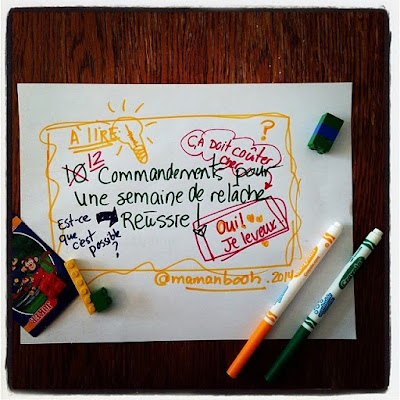 À LIRE
?
ÇA Doit coûter
cher
10 12 Commandements pour
une semaine de relâche
Réussie !
Est-ce
que c'est
possible
?
Oui!
Je le veux
@mamanbooh.2014
Crayola